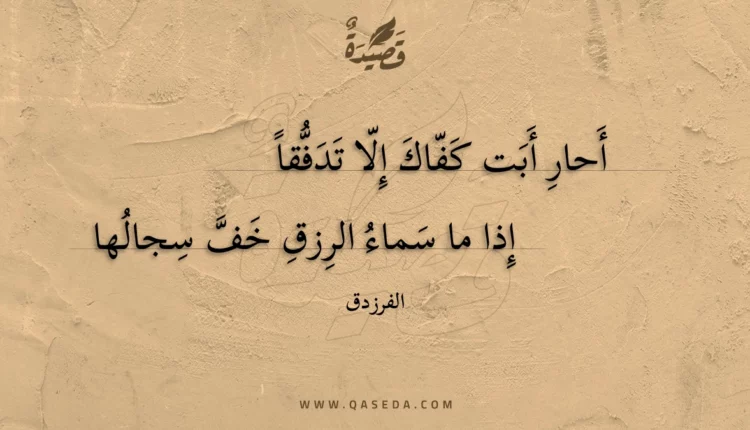 قَصِيدَةٌ
أَحارِ أَبَت كَفّاكَ إِلّا تَدَفُّقاً
إِذا ما سَماءُ الرِزقِ خَفَّ سِجالُها
الفرزدق
WWW.QASEDA.COM